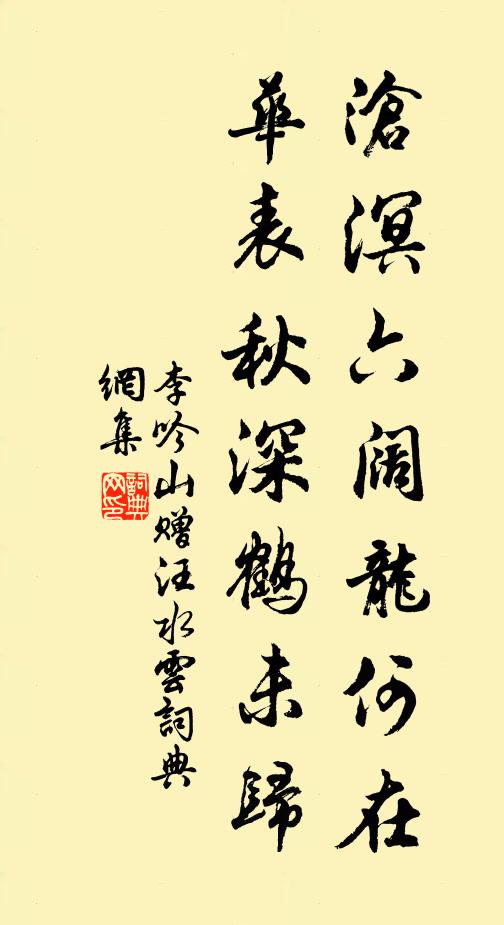 滄溟六阔龍何在
華表秋深鶴未歸
李吟山赠汪水雲詞典
網集
詞典
网印